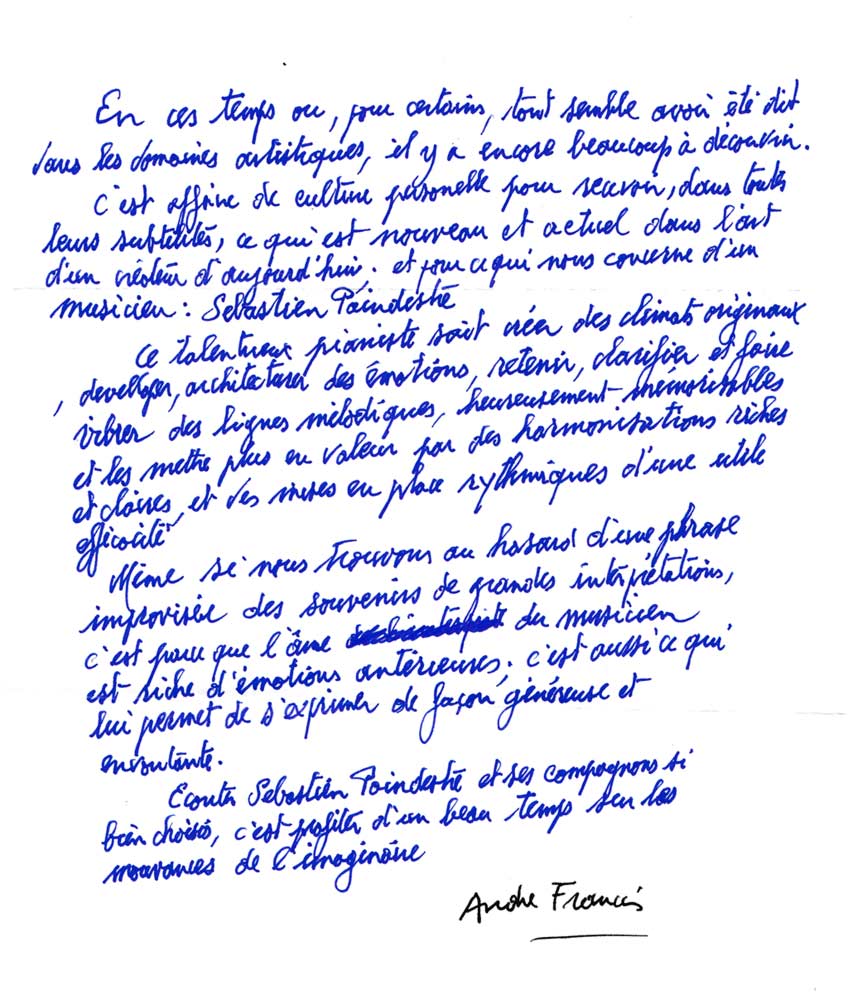 En ces temps ou, pour certains, tout semble avoir été dit
dans les domaines artistiques, il y a encore beaucoup à découvrir.
C'est affaire de culture personelle pour recevoir, dans toutes
leurs subtilités, ce qui est nouveau et actuel dans l'art
d'un créateur d'aujourd'hui. et pour ce qui nous concerne d'un
musicien : Sebastien Paindestre
Ce talentueux pianiste sait créer des climats originaux
, develloper, architecturer des émotions, retenir, clarifier et faire
vibrer des lignes mélodiques, heureusement mémorisables
et les mettre plus en valeur par des harmonisations riches
et claires, et des mises en place rythmiques d'une utile
efficacité
Même si nous trouvons au hasard d'une phrase
improvisée des souvenirs de grandes interprétations,
c'est parce que l'âme du musicien
est riche d'émotions antérieures ; c'est aussi ce qui
lui permet de s'exprimer de façon généreuse et
envoutante.
Ecouter Sebastien Paindestre et ses compagnons si
bien choisis, c'est profiter d'un beau temps sur les
mouvances de l'imaginaire
Andre Francis